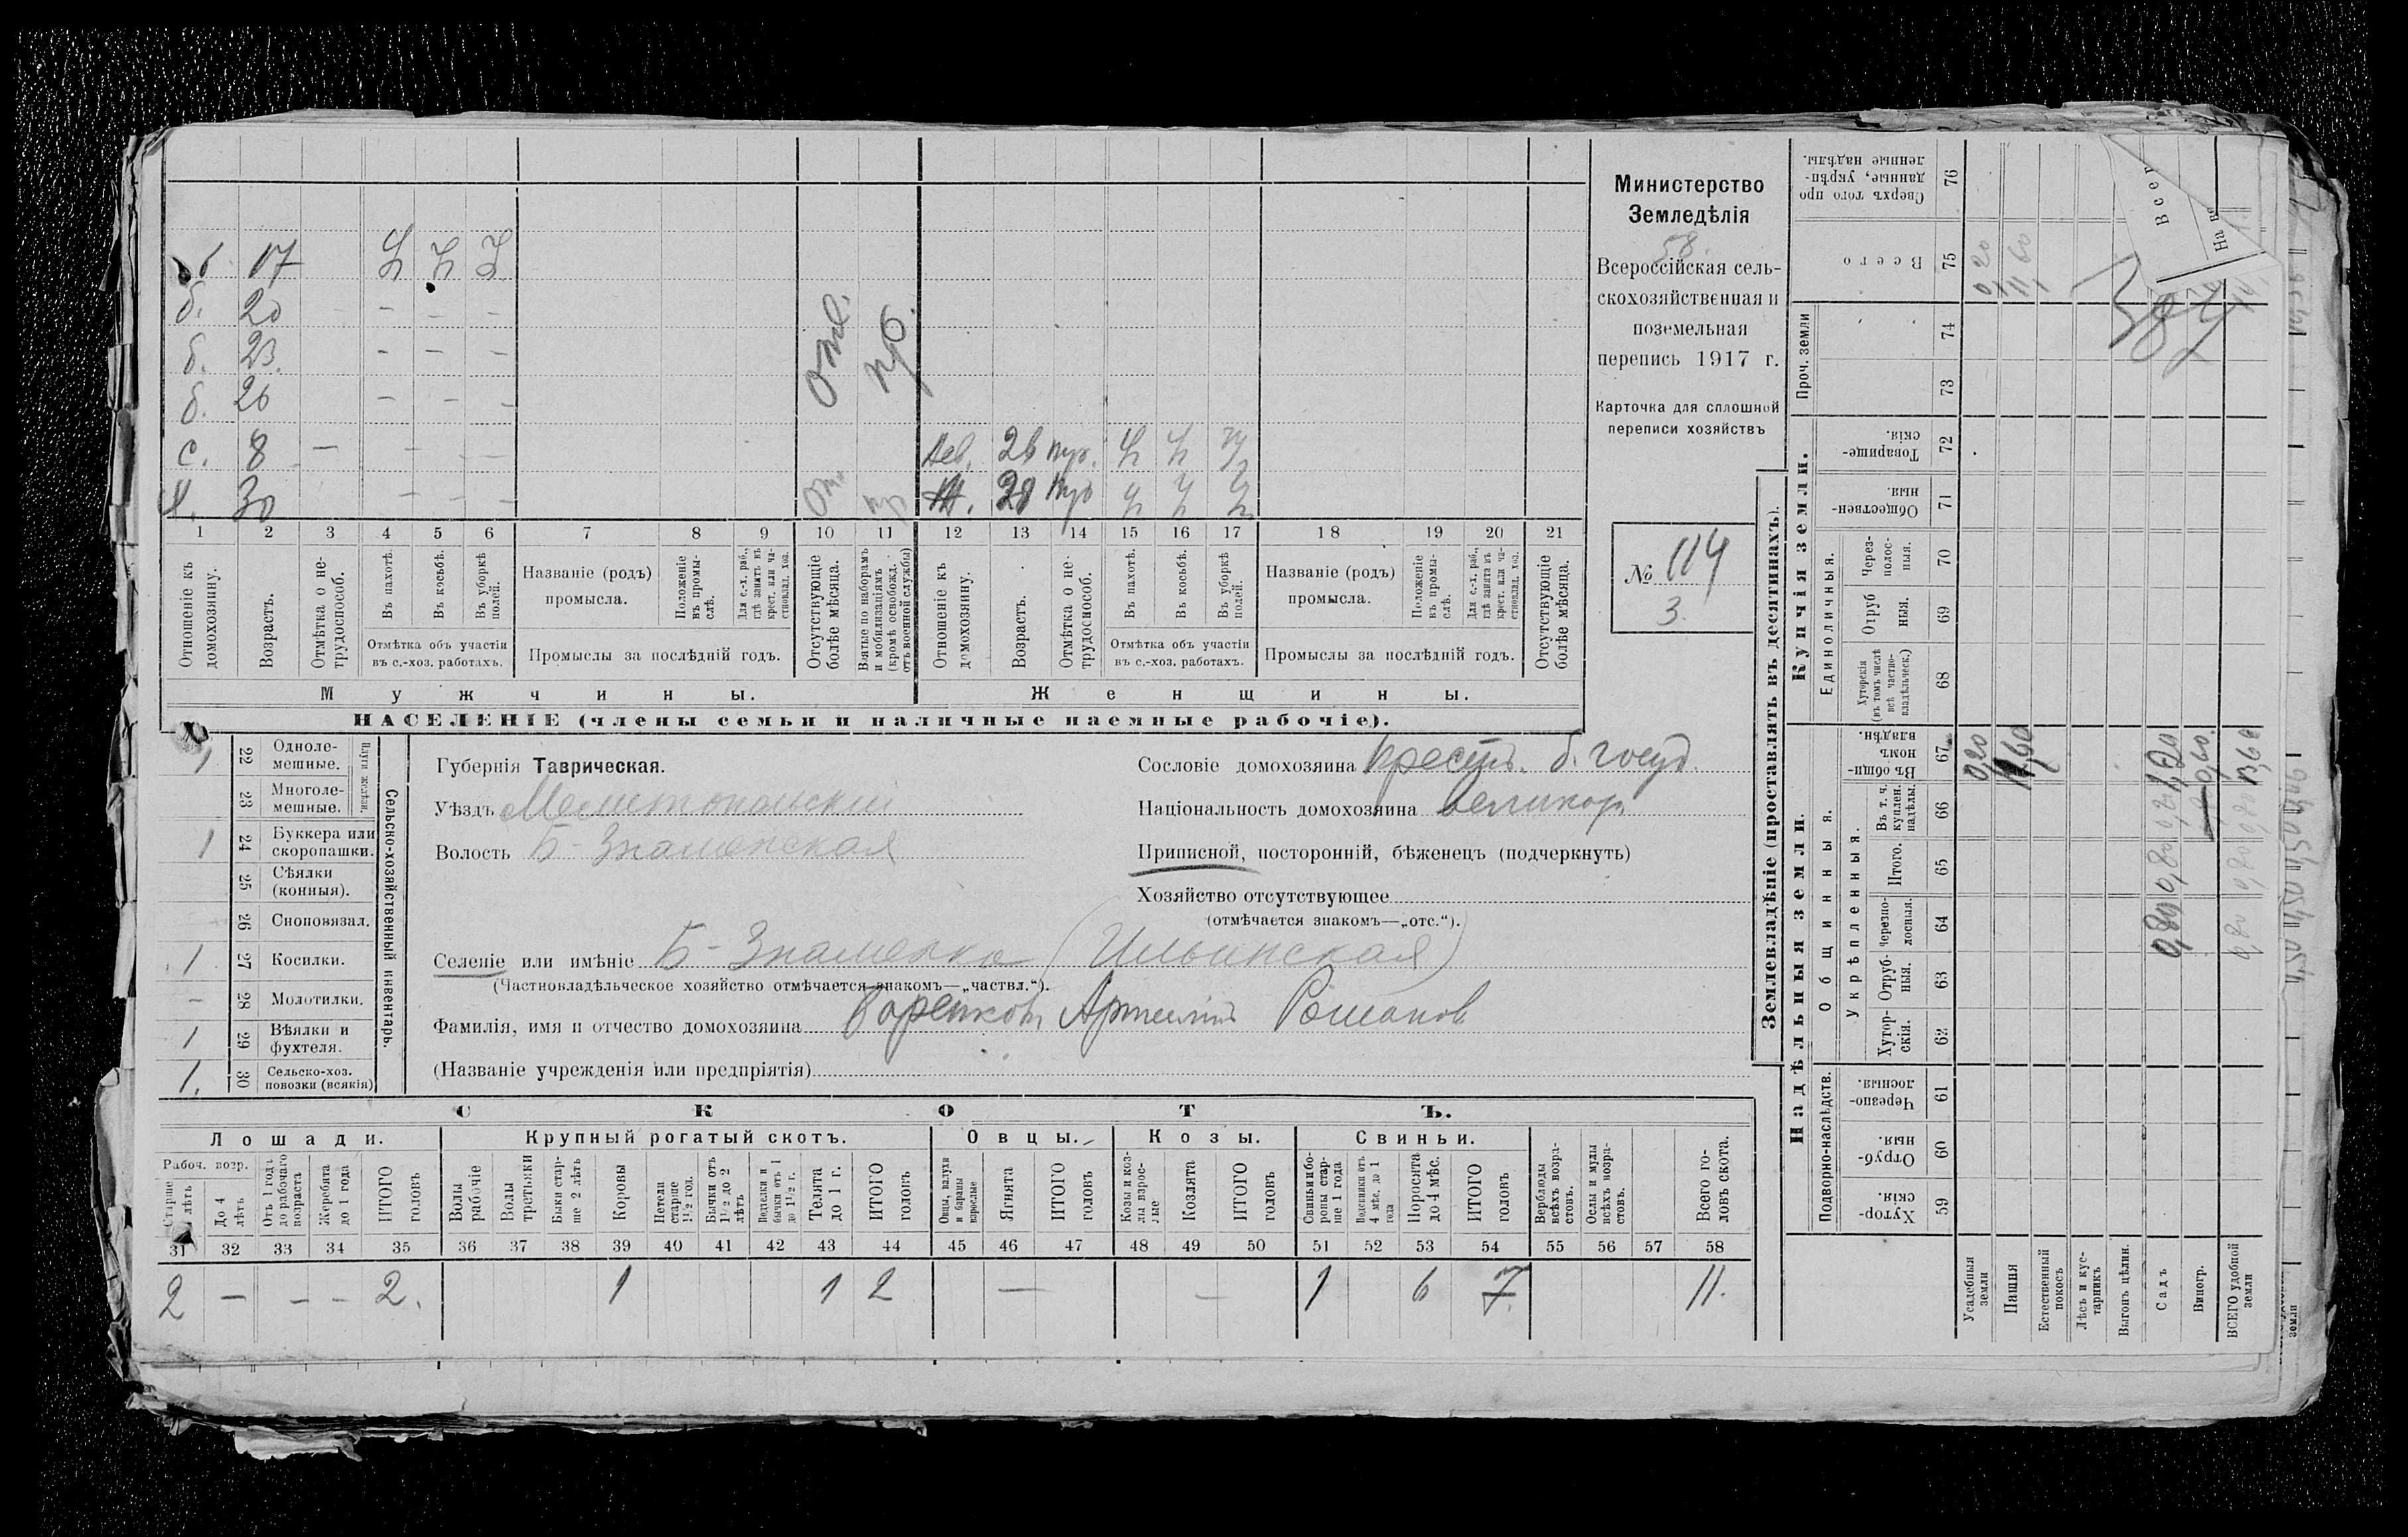 б. 17 Ч Ч Ч
б. 20 – – –
б. 23. – – –
б. 26 – – –
с. 8 – – – –
Х. 30 – – –
отс. пр.
дев. 26 Ч Ч Ч
Ж. 28 Ч Ч Ч
1 2 3 4 5 6 7 8 9 10 11 12 13 14 15 16 17 18 19 20 21
Отношеніе къ домохозяину.
Возрастъ.
Отмѣтка о не-трудоспособ.
Въ пахотѣ.
Въ косьбѣ.
Въ уборкѣ полей.
Отмѣтка объ участіи
въ с.-хоз. работахъ.
Названіе (родъ)
промысла.
Положеніе въ промы-слѣ.
Для с.-х. раб., гдѣ занятъ въ крест. или ча-стновлад. хоз.
Промыслы за послѣдній годъ.
Отсутствующіе болѣе мѣсяца.
Взятые по наборамъ и мобилизаціямъ (кромѣ освобожд. отъ военной службы)
Отношеніе къ домохозяину.
Возрастъ.
Отмѣтка о не-трудоспособ.
Въ пахотѣ.
Въ косьбѣ.
Въ уборкѣ полей.
Отмѣтка объ участіи
въ с.-хоз. работахъ.
Названіе (родъ)
промысла.
Положеніе въ промы-слѣ.
Для с.-х. раб., гдѣ занята въ крест. или ча-стновлад. хоз.
Промыслы за послѣдній годъ.
Отсутствующіе болѣе мѣсяца.
Мужчины.
Женщины.
НАСЕЛЕНІЕ (члены семьи и наличные наемные рабочіе).
Министерство
Земледѣлія
58.
Всероссійская сель-
скохозяйственная и
поземельная
перепись 1917 г.
Карточка для сплошной
переписи хозяйствъ
№ 114
3.
22 Одноле-мешные.
23 Многоле-мешные.
Плуги желѣзн.
1 24 Буккера или скоропашки.
25 Сѣялки (конныя).
26 Сноповязал.
1 27 Косилки.
– 28 Молотилки.
1 29 Вѣялки и фухтеля.
1. 30 Сельско-хоз. повозки (всякія)
Сельско-хозяйственный инвентарь.
Губернія Таврическая.
Уѣздъ Мелитопольскій
Волость Б-Знаменская
Селеніе или имѣніе Б-Знаменка (Ильинская)
(Частновладѣльческое хозяйство отмѣчается знакомъ—„частвл.“).
Фамилія, имя и отчество домохозяина Артемій Романов
(Названіе учрежденія или предпріятія)
Сословіе домохозяина крестъ. б. госуд.
Національность домохозяина великор.
Приписной, посторонній, бѣженецъ (подчеркнуть)
Хозяйство отсутствующее
(отмѣчается знакомъ—„отс.“).
СКОТЪ.
Лошади.
Крупный рогатый скотъ.
Овцы.
Козы.
Свиньи.
Рабоч. возр.
Старше 4 лѣтъ
До 4 лѣтъ
Отъ 1 года до рабочаго возраста
Жеребята до 1 года
ИТОГО головъ
Волы рабочіе
Волы третьяки
Быки стар-ше 2 лѣтъ
Коровы
Нетели старше 1½ год.
Бычки отъ 1½ до 2 лѣтъ
Подтелки и бычки отъ 1 до 1½ г.
Телята до 1 г.
ИТОГО головъ
Овцы, валухи и бараны взрослые
Ягнята
ИТОГО головъ
Козы и коз-лы взрос-лые
Козлята
ИТОГО головъ
Свиньи и бо-ровы стар-ше 1 года
Подсвинки отъ 4 мѣс. до 1 года
Поросята до 4 мѣс.
ИТОГО головъ
Верблюды всѣхъ возра-стовъ.
Ослы и мулы всѣхъ возра-стовъ.
Всего го-ловъ скота.
31 32 33 34 35 36 37 38 39 40 41 42 43 44 45 46 47 48 49 50 51 52 53 54 55 56 57 58
2 – – – 2. 1 1 2 – – 1 6 7. 11.
Землевладѣніе (проставлять въ десятинахъ).
Надѣльныя земли.
Купчія земли.
Проч. земли
Подворно-наслѣдств.
Общинныя.
Укрѣпленныя.
Единоличныя.
Хутор-скія. 59
Отруб-ныя. 60
Черезпо-лосныя. 61
Хутор-скія. 62
Отруб-ныя. 63
Черезпо-лосныя. 64
Итого. 65
Въ т. ч. куплен. надѣлы. 66
Въ общи-номъ владѣн. 67
Хуторскія (въ томъ числѣ всѣ частно-владѣльческ.) 68
Отруб ныя. 69
Через-полос-ныя. 70
Обществен-ныя. 71
Товарище-скія. 72
73
74
Всего 75
Сверхъ того про данные, укрѣп-ленные надѣлы. 76
Усадебныя земли 0,20 0,20
Пашня 11,60 11,60
Естественный покосъ
Лѣсъ и кус-тарникъ
Выгонъ цѣлин.
Садъ 0,80 0,80 1,20
Виногр. 0,60.
ВСЕГО удобной земли 0,80 0,80 13,60
387
Всег
На вс
земли